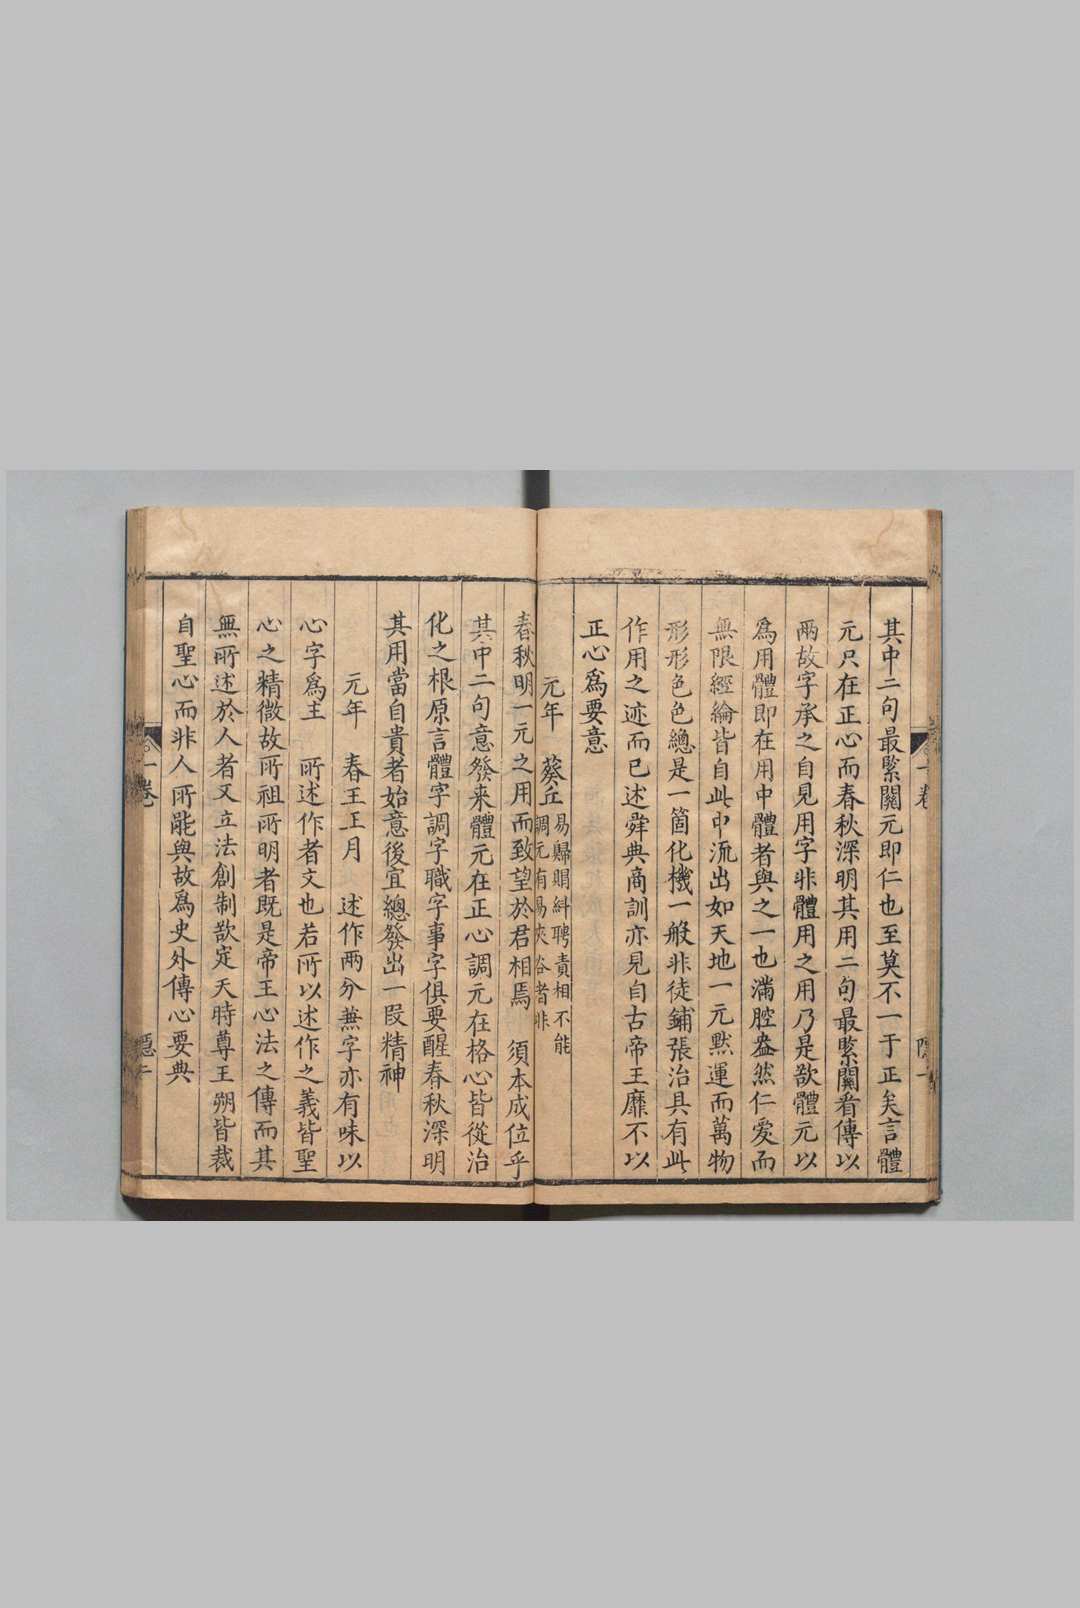 其中二句最緊關元即仁也至莫不一于正矣言體
元只在正心而春秋深明其用二句最緊關看傳以
兩故字承之自見用字非體用之用乃是欲體元以
爲用體即在用中體者與之一也滿腔盎然仁愛而
無限經綸皆自此中流出如天地一元默運而萬物
形形色色總是一箇化機一般非徒鋪張治具有此
作用之迹而已述舜典商訓亦見自古帝王靡不以
正心爲要意
元年　葵丘　易歸賵糾聘責相不能
調元有易夾谷者非
春秋明一元之用而致望於君相焉　須本成位乎
其中二句意發来體元在正心調元在格心皆從治
化之根原言體字調字職字事字俱要醒春秋深明
其用當自貴者始意後宜總發出一段精神
元年　春王正月　述作兩分兼字亦有味以
心字爲主　所述作者文也若所以述作之義皆聖
心之精微故所祖所明者既是帝王心法之傳而其
無所述於人者又立法創制欲定天時尊王朔皆裁
自聖心而非人所能與故爲史外傳心要典
一卷
隱一
一卷
隱二